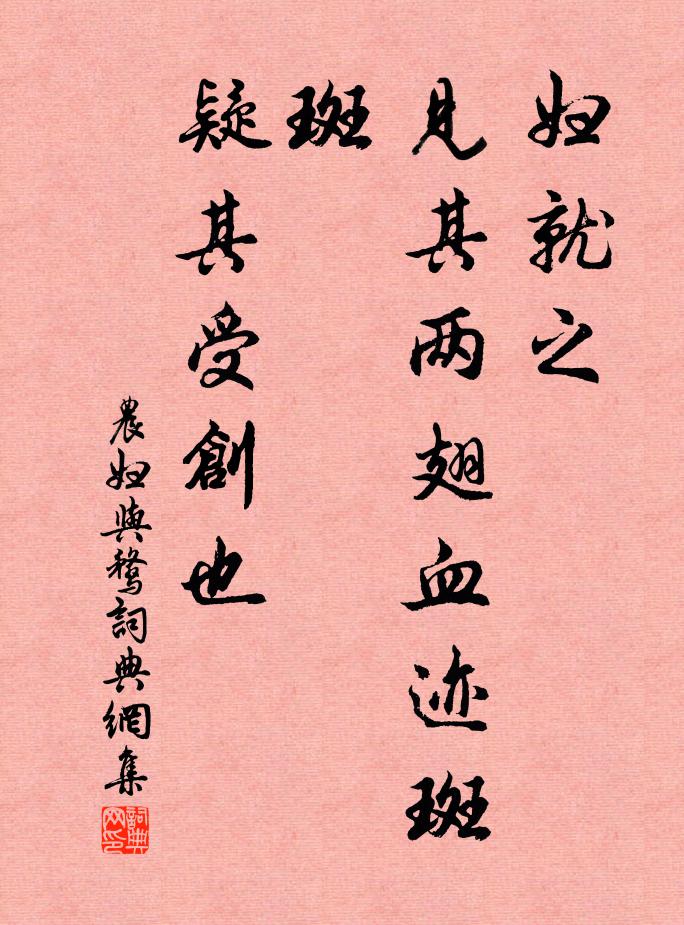 妇就之
见其两翅血迹斑
斑
疑其受創也
農妇與鶩詞典網集
詞典网印